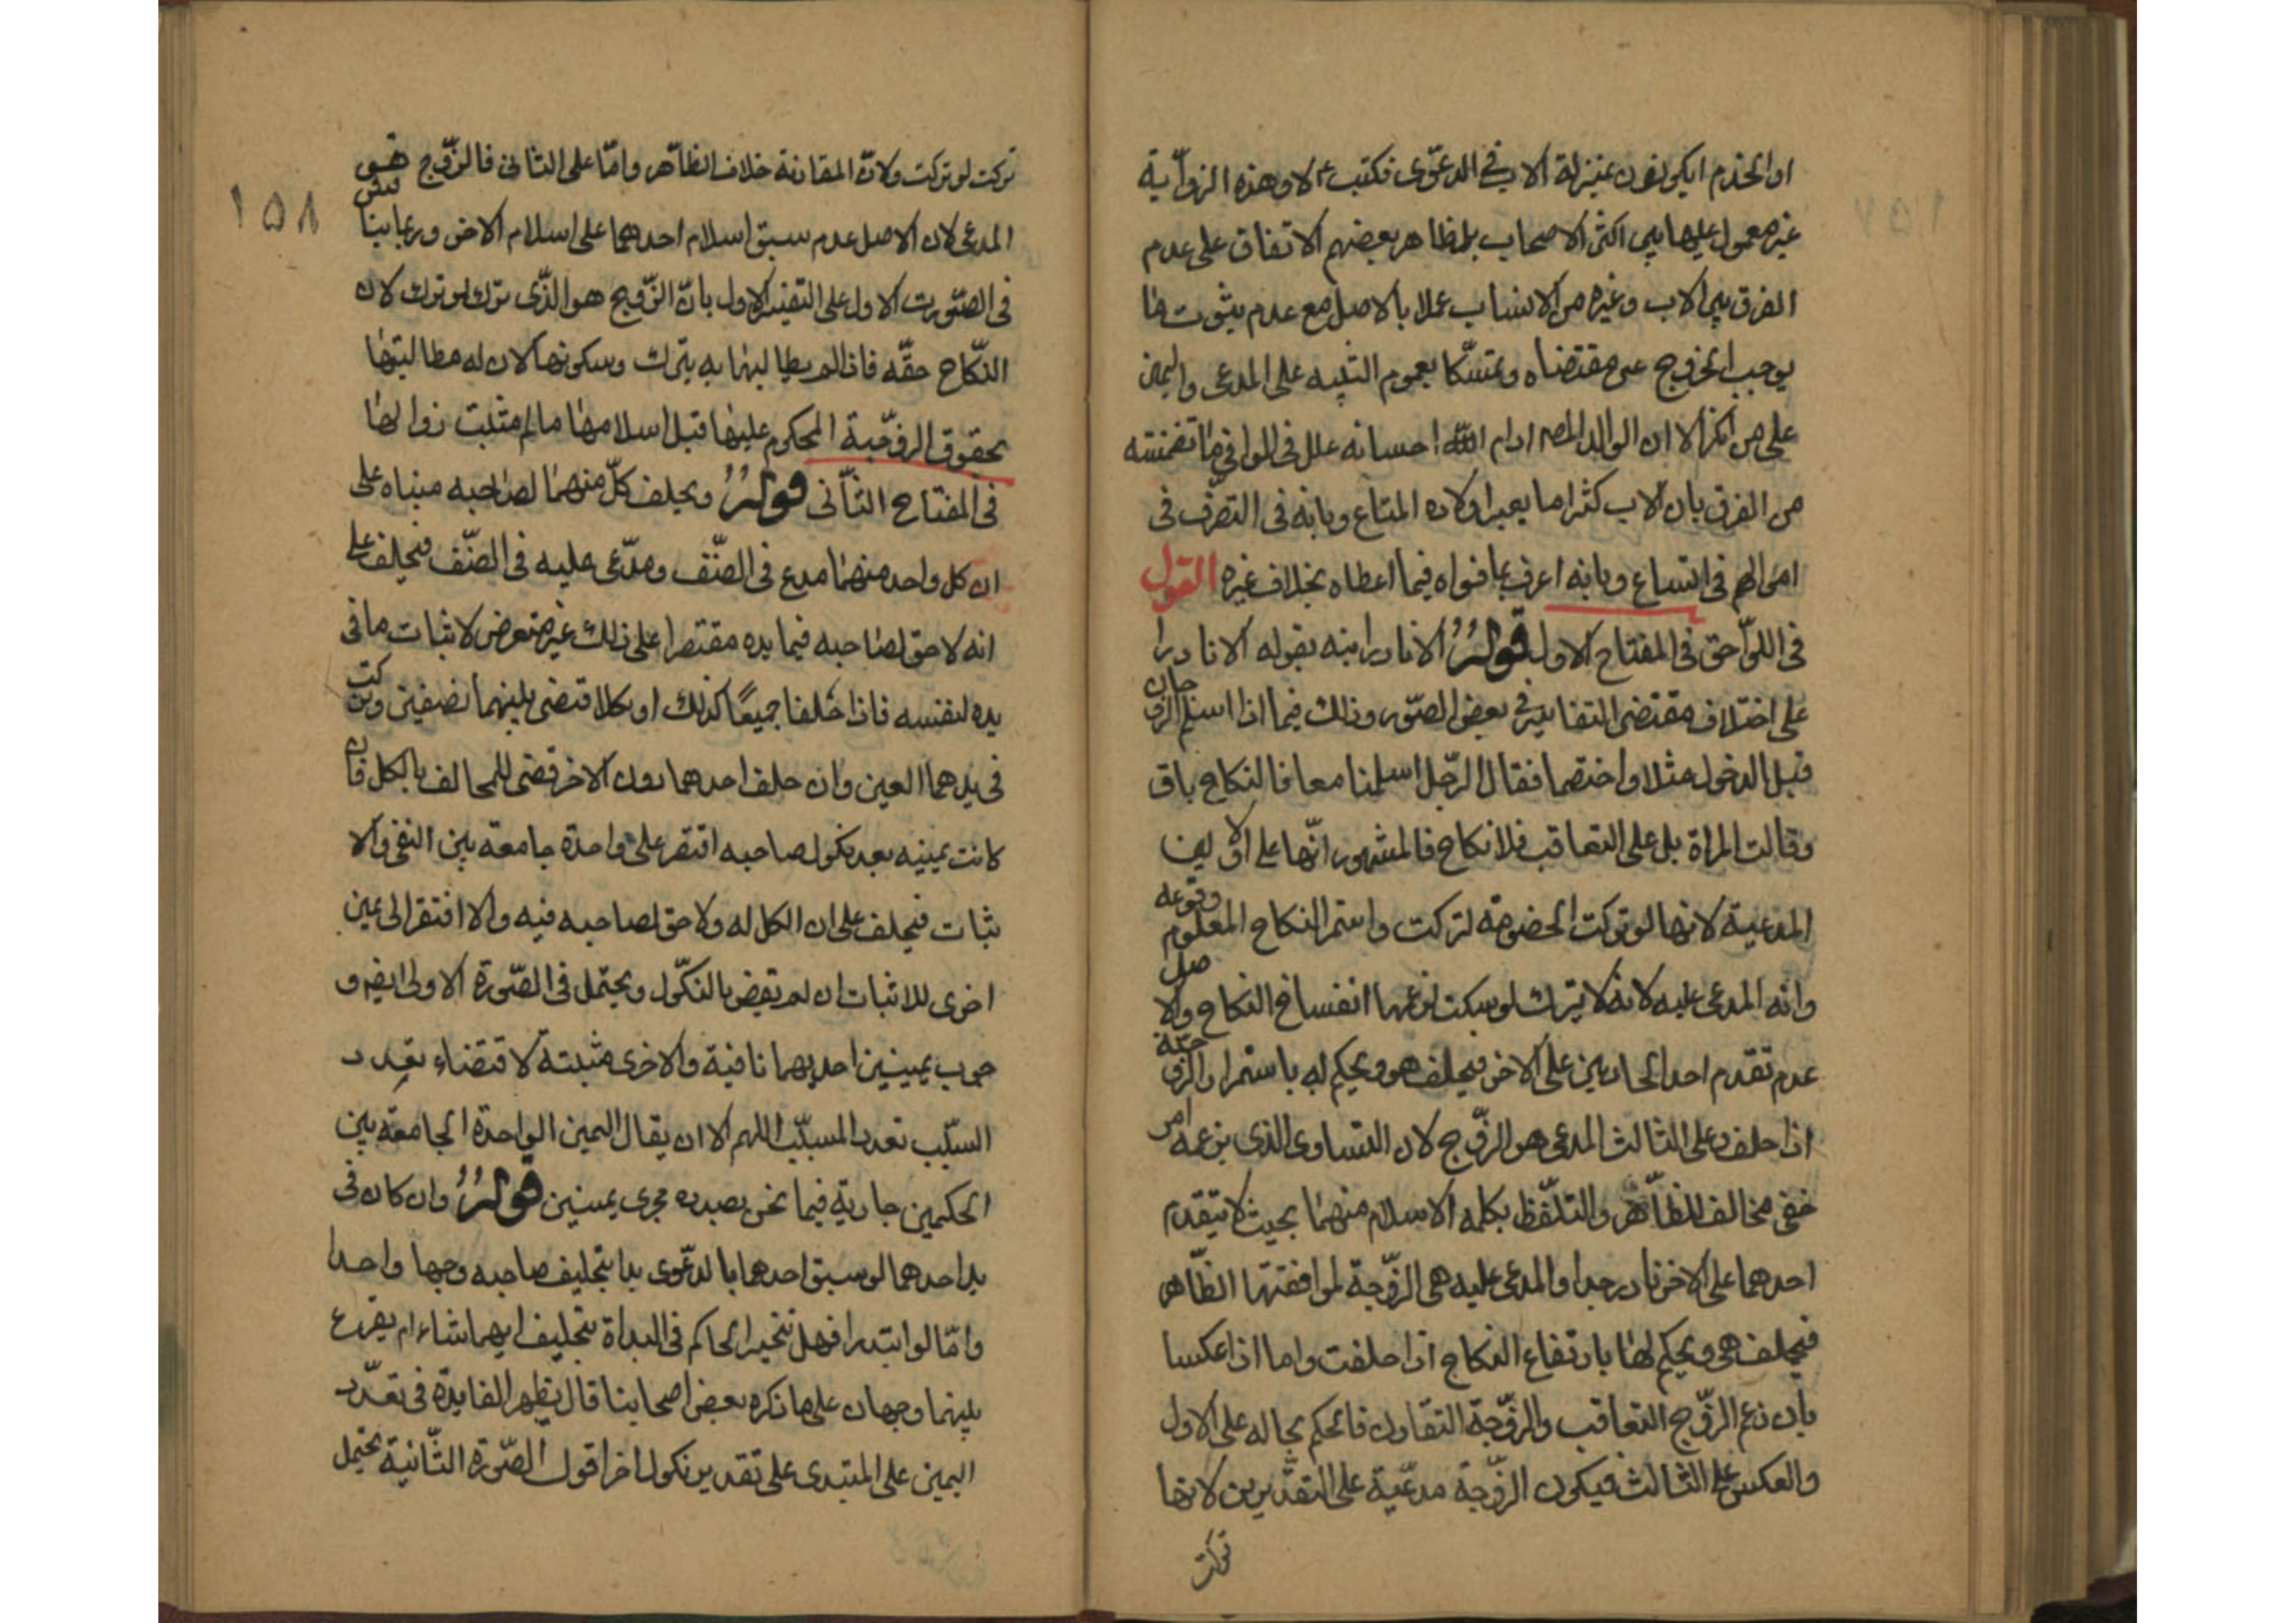 او الخدم ايكونون بمنزلة الاب في الدعوى فكتب ع لا وهذه الرواية
غير معمول عليها بين اكثر الاصحاب بل ظاهر بعضهم الاتفاق على عدم
الفرق بين الاب وغيره من الانساب عملا بالاصل مع عدم ثبوت ما
يوجب الخروج عن مقتضاه وتمسكا بعموم البينه على المدعى واليمين
على من انكر الا ان الوالد المصـ ادام الله احسانه علل في الوافي ما تضمنته
من الفرق بان الاب كثيرا ما يعير اولاده المتاع وبانه في التصرف في
اموالهم في اتساع وبانه اعرف بما نواه فيما اعطاه بخلاف غيره القول
في اللواحق في المفتاح الاول قوله الا نادرا نبه بقوله الا نادرا
على اختلاف مقتضى التفاسير في بعض الصور وذلك فيما اذا اسلم الزوجان
قبل الدخول مثلا واختصما فقال الرجل اسلمنا معا فالنكاح باق
وقالت المراة بل على التعاقب فلا نكاح فالمشهور انها على الاولين
المدعية لانها لو تركت الخصومة لتركت واستمر النكاح المعلوم وقوعه
وانه المدعى عليه لانه لا يترك لو سكت لزعمها انفساخ النكاح والاصل
عدم تقدم احد الحادثين على الاخر فيحلف هو ويحكم له باستمرار الزوجية
اذا حلف وعلى الثالث المدعى هو الزوج لان التساوى الذى يزعمه امر
خفى مخالف للظاهر والتلفظ بكلمه الاسلام منهما بحيث لا يتقدم
احدهما على الاخر نادر جدا والمدعى عليه هى الزوجة لموافقتها الظاهر
فيحلف هى ويحكم لها بارتفاع النكاح اذا حلفت واما اذا عكسا
بان زعم الزوج التعاقب والزوجة التقارن فالحكم بحاله على الاول
والعكس على الثالث فيكون الزوجة مدعية على التقديرين لانها
تركت
١٥٨
تركت لو تركت ولان المقارنة خلاف الظاهر واما على الثانى فالزوج هو
المدعى لان الاصل عدم سبق اسلام احدهما على اسلام الاخر وربما يناقش
فى الصورت الاول على التفسير الاول بان الزوج هو الذى يترك لو ترك لان
النكاح حقه فاذا لم يطالبها به يترك وسكوتها لان له مطالبتها
بحقوق الزوجية المحكوم عليها قبل اسلامها ما لم يثبت زوالها
فى المفتاح الثانى قوله ويحلف كل منهما لصاحبه مبناه على
ان كل واحد منهما مدع فى النصف ومدعى عليه فى النصف فيحلف على
انه لا حق لصاحبه فيما بيده مقتصرا على ذلك غير متعرض لاثبات ما فى
يده لنفسه فاذا حلفا جميعا كذلك او نكلا قضى بينهما نصفين
فى يدهما العين وان حلف احدهما دون الاخر قضى للحالف بالكل فان
كانت يمينه بعد نكول صاحبه اقتصر على واحدة جامعة بين النفى والا
ثبات فيحلف على ان الكل له ولا حق لصاحبه فيه والا افتقر الى يمين
اخرى للاثبات ان لم نقض بالنكول ويحتمل فى الصورة الاولى ايضا و
جوب يمينين احديهما نافية والاخرى مثبتة لاقتضاء تعدد
السبب تعدد المسبب اللهم الا ان يقال اليمين الواحدة الجامعة بين
الحكمين جارية فيما نحن بصدده مجرى يمينين قوله وان كان فى
يد احدهما لو سبق احدهما بالدعوى بدا بتحليف صاحبه وجها واحدا
واما لو ابتدرا فهل يتخير الحاكم فى البداة بتحليف ايهما شاء ام يقرع
بينهما وجهان على ما ذكره بعض اصحابنا قال يظهر الفايدة فى تعدد
اليمين على المبتدى على تقدير نكول اخر اقول الصورة الثانية يحتمل